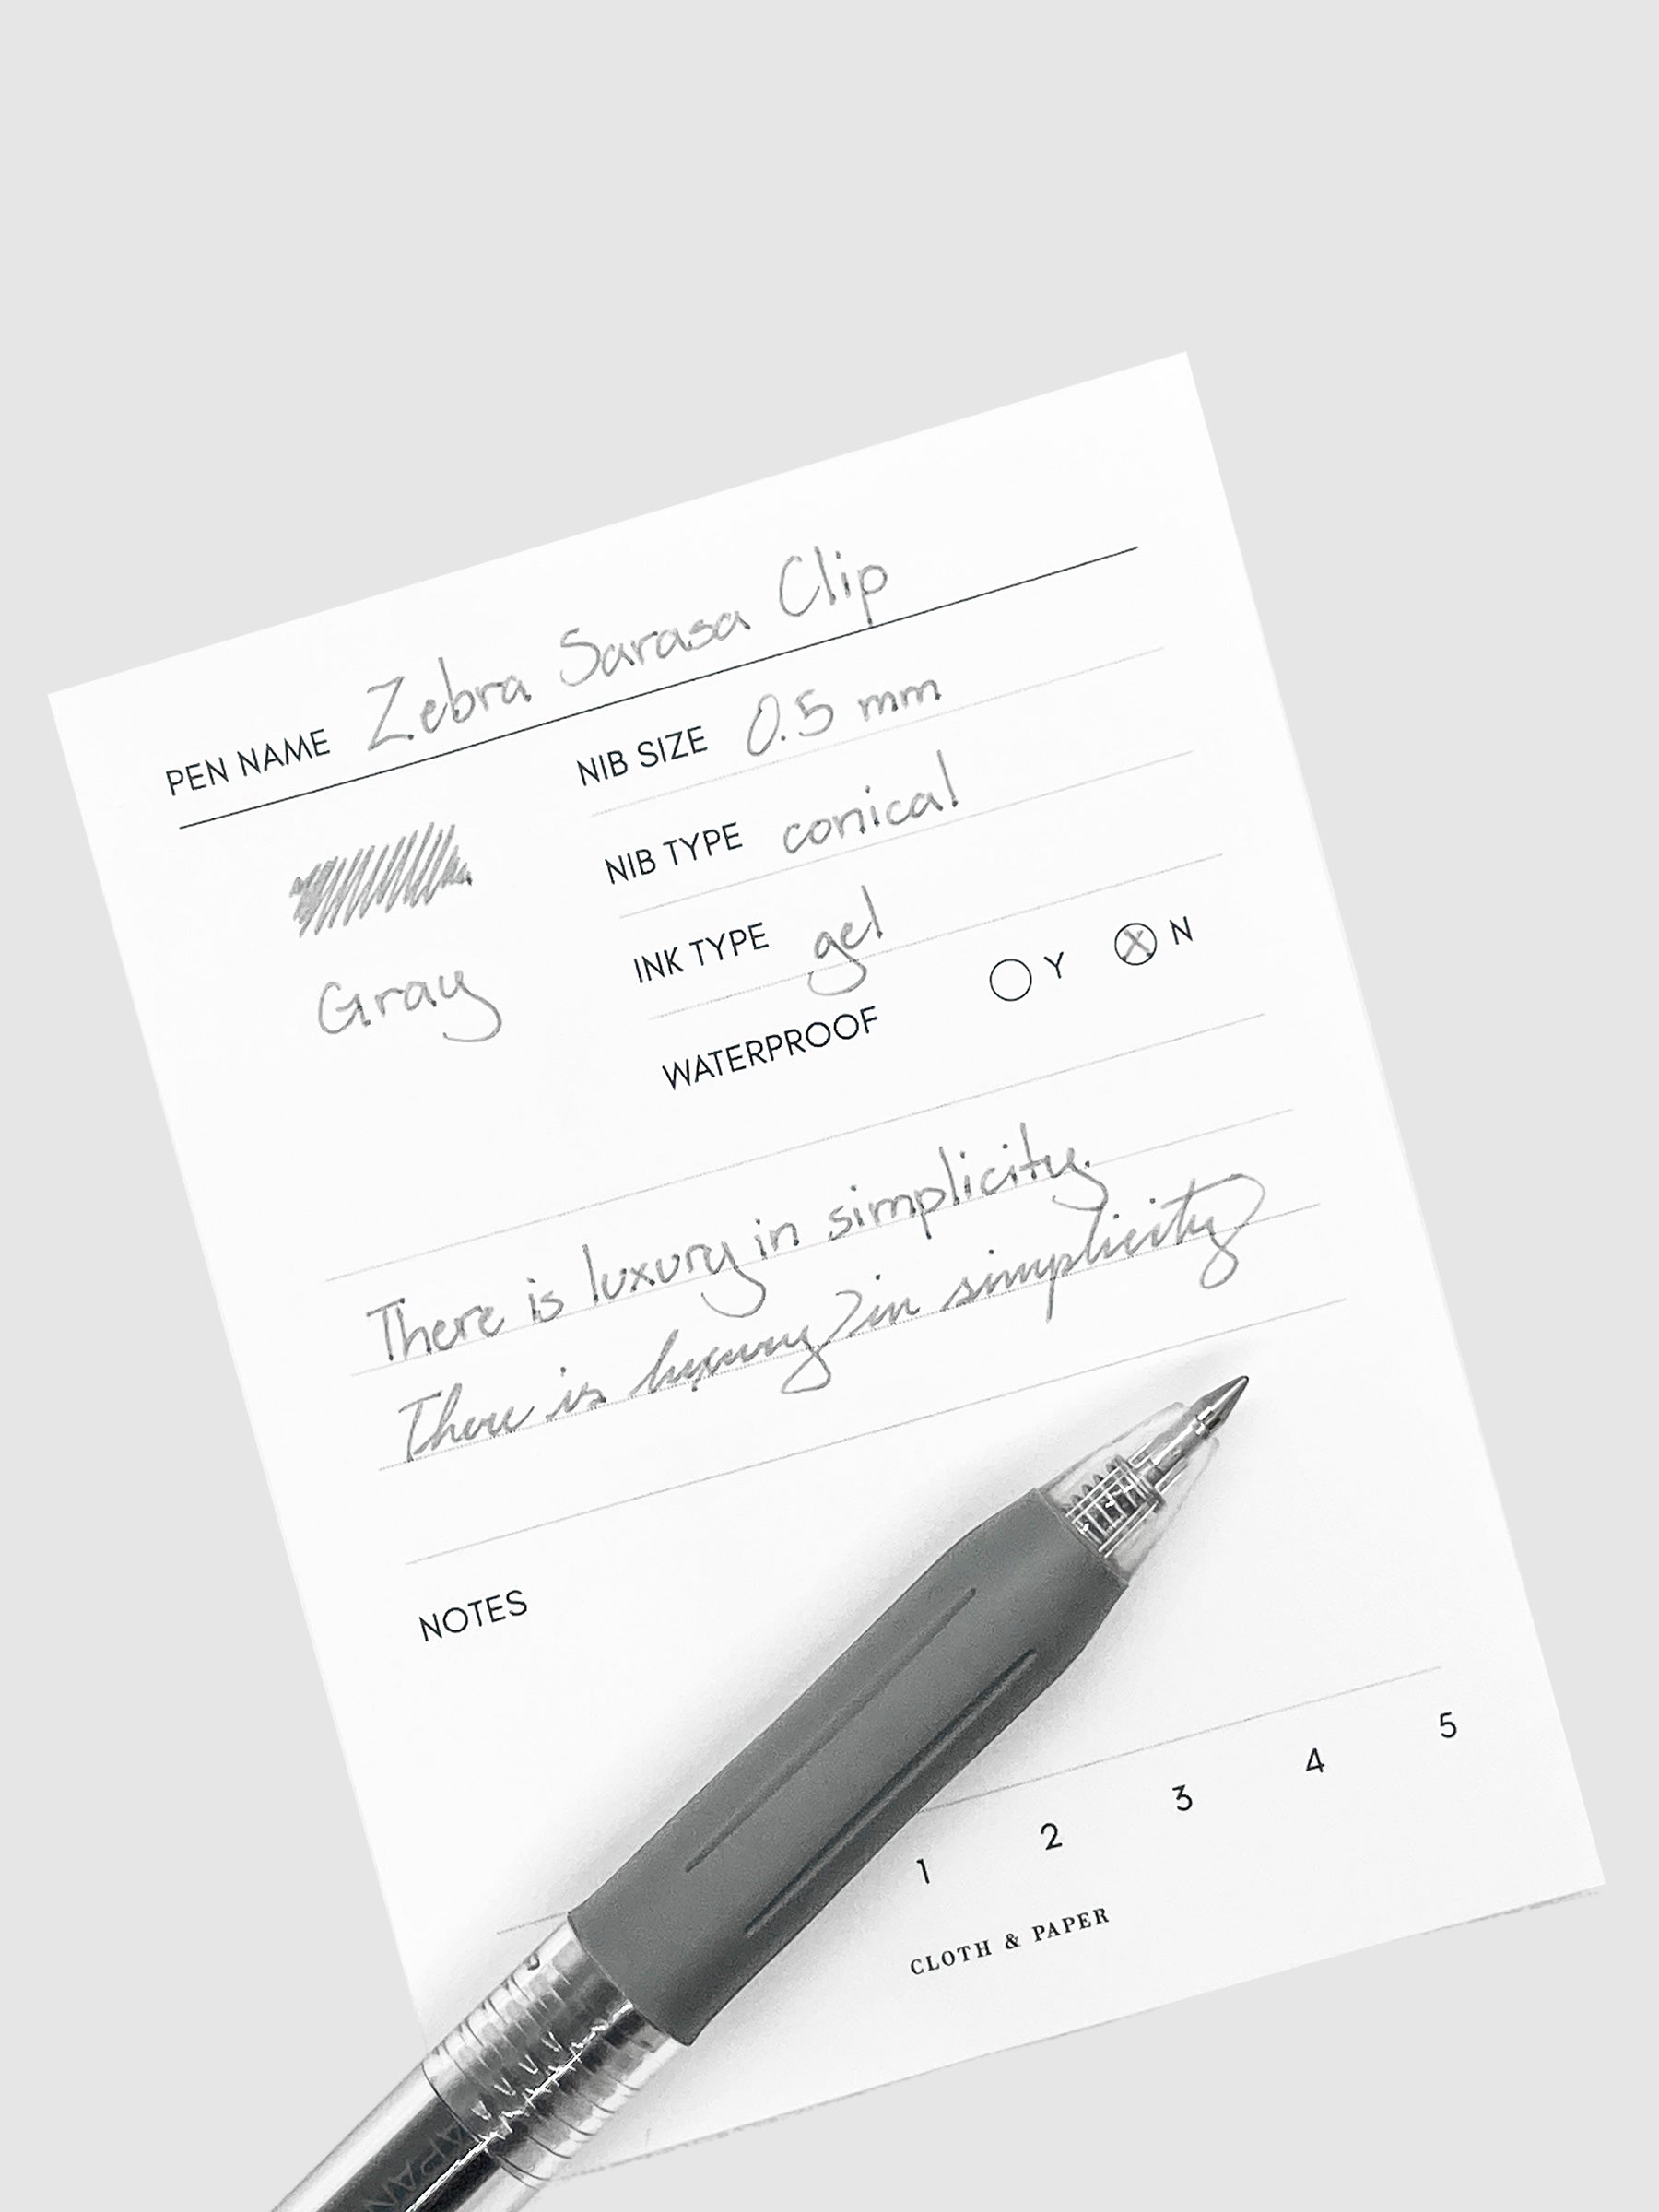 PEN NAME Zebra Sarasa Clip
NIB SIZE 0.5 mm
NIB TYPE conical
Gray
INK TYPE gel
WATERPROOF Y X N
There is luxury in simplicity.
There is luxury in simplicity
NOTES
1 2 3 4 5
CLOTH & PAPER
JAPAN